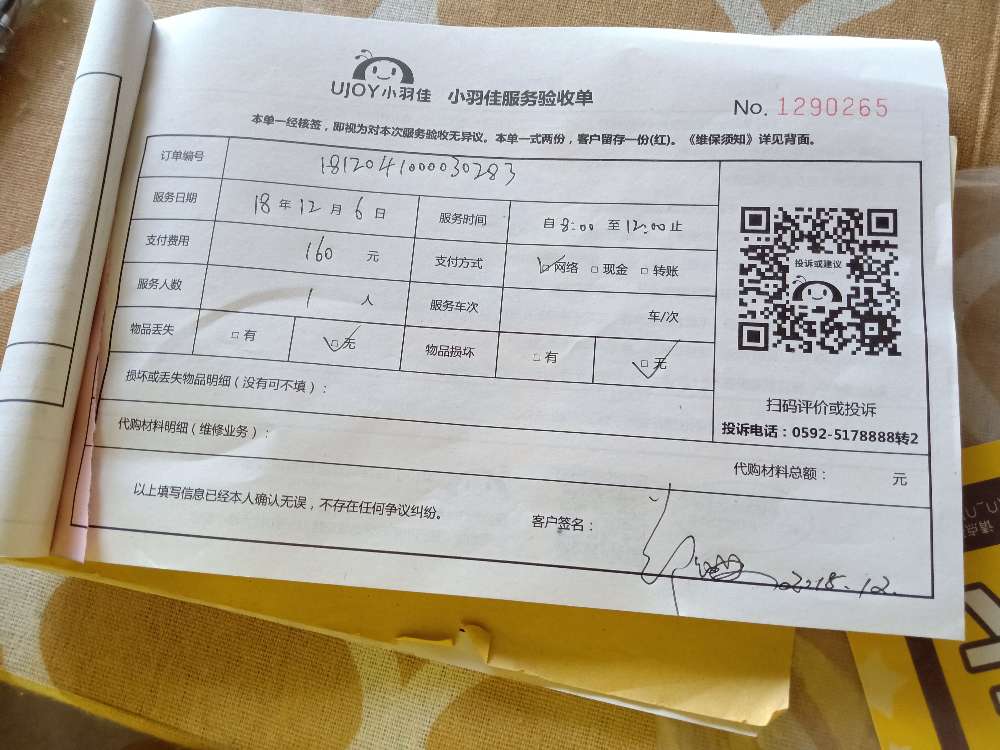 UJOY小羽佳 小羽佳服务验收单 No. 1290265
本单一经核签，即视为对本次服务验收无异议。本单一式两份，客户留存一份(红)。《维保须知》详见背面。
订单编号 181204100030283
服务日期 18 年 12 月 6 日 服务时间 自 8:00 至 12:00 止
支付费用 160 元 支付方式 ☑网络 □现金 □转账
服务人数 1 人 服务车次 车/次
物品丢失 □有 ☑无 物品损坏 □有 ☑无
损坏或丢失物品明细（没有可不填）：
代购材料明细（维修业务）：
投诉或建议
扫码评价或投诉
投诉电话：0592-5178888转2
代购材料总额： 元
以上填写信息已经本人确认无误，不存在任何争议纠纷。
客户签名：
2018.12.
请点